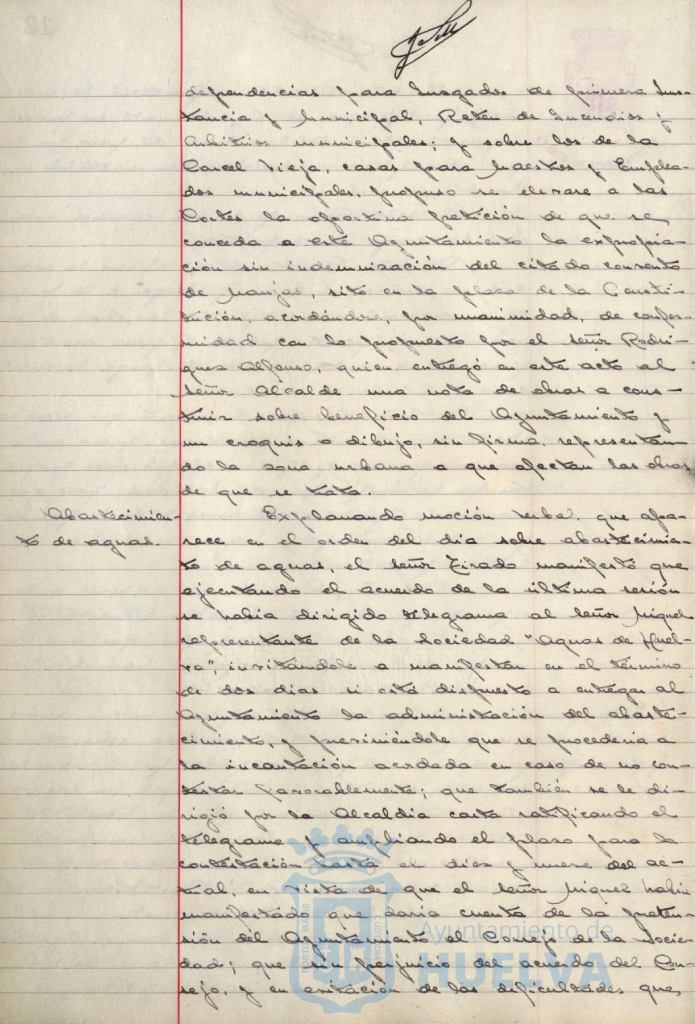 dependencias para Juzgados de primera Ins-
tancia y Municipal, Reten de Incendios y
Arbitrios municipales; y sobre los de la
Carcel Vieja, casas para Maestros y Emplea-
dos municipales, propuso se elevase a las
Cortes la oportuna petición de que se
conceda a este Ayuntamiento la expropia-
ción sin indemnización del citado convento
de Monjas, sito en la plaza de la Consti-
tución, acordándose, por unanimidad, de confor-
midad con lo propuesto por el señor Rodri-
guez Alfonso, quien entregó en este acto al
señor Alcalde una nota de obras a cons-
truir sobre beneficio del Ayuntamiento y
un croquis o dibujo, sin firma, representan-
do la zona urbana a que afectan las obras
de que se trata.
Abastecimien-
to de aguas.
Explanando moción verbal que apa-
rece en el orden del dia sobre abastecimien-
to de aguas, el señor Tirado manifestó que
ejecutando el acuerdo de la última sesión
se habia dirigido telegrama al señor Miquel
representante de la Sociedad "Aguas de Huel-
va", invitándole a manifestar en el término
de dos dias si está dispuesto a entregar al
Ayuntamiento la administración del abaste-
cimiento, y previniéndole que se procedería a
la incautación acordada en caso de no con-
testar favorablemente; que también se le di-
rigió por la Alcaldia carta ratificando el
telegrama y ampliando el plazo para la
contestación hasta el diez y nueve del ac-
tual, en vista de que el señor Miquel habia
manifestado que daria cuenta de la preten-
sión del Ayuntamiento al Consejo de la Socie-
dad; que sin perjuicio del acuerdo del Con-
sejo, y en evitación de las dificultades que,
Ayuntamiento de
HUELVA